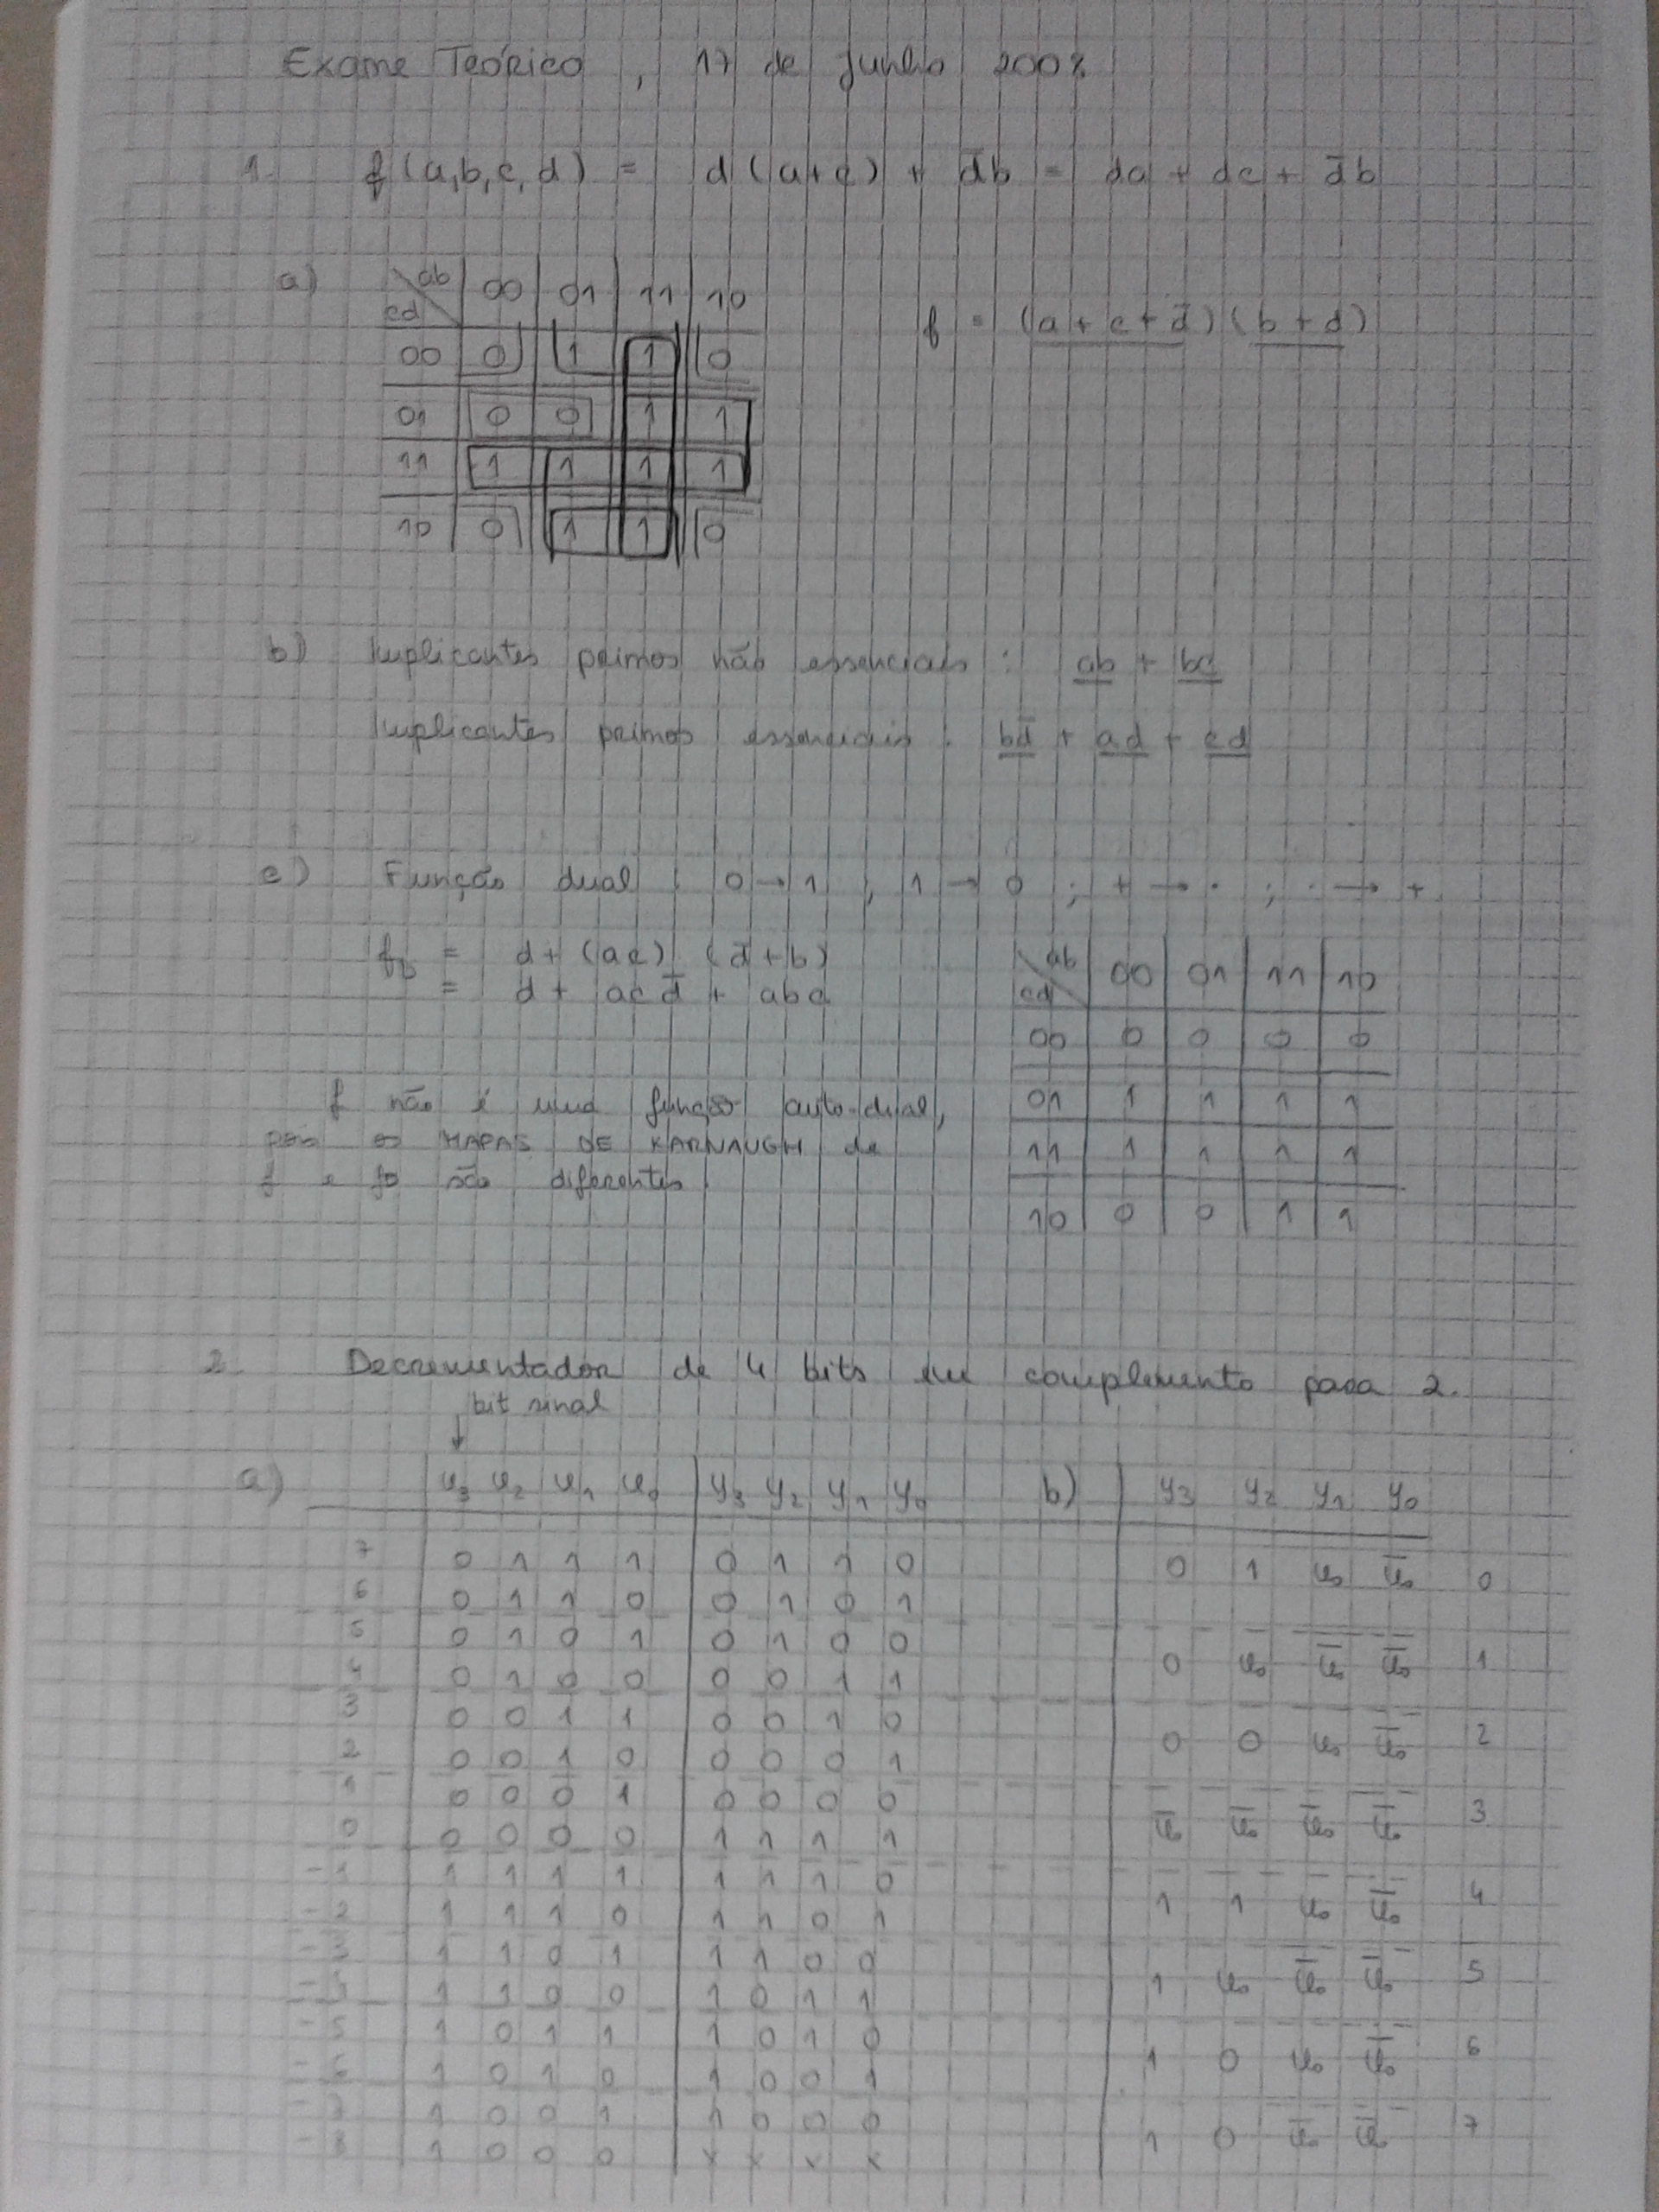 Exame Teórico, 17 de Junho 2008
1. f(a,b,c,d) = d(a+c) + d̄b = da + dc + d̄b
a) ab 00 01 11 10
cd
00 0 1 1 0
01 0 0 1 1
11 1 1 1 1
10 0 1 1 0
f = (a+c+d̄)(b+d)
b) Implicantes primos não essenciais: ab + bc
Implicantes primos essenciais: bd̄ + ad + cd
c) Função dual: 0→1; 1→0; +→·; ·→+
fD = d+(ac) (d̄+b)
= d + acd̄ + abc
ab 00 01 11 10
cd
00 0 0 0 0
01 1 1 1 1
11 1 1 1 1
10 0 0 1 1
f não é uma função auto-dual,
pois os MAPAS DE KARNAUGH de
f e fD são diferentes.
2. Decrementador de 4 bits em complemento para 2.
bit sinal
a) u3 u2 u1 u0 y3 y2 y1 y0
7 0 1 1 1 0 1 1 0
6 0 1 1 0 0 1 0 1
5 0 1 0 1 0 1 0 0
4 0 1 0 0 0 0 1 1
3 0 0 1 1 0 0 1 0
2 0 0 1 0 0 0 0 1
1 0 0 0 1 0 0 0 0
0 0 0 0 0 1 1 1 1
-1 1 1 1 1 1 1 1 0
-2 1 1 1 0 1 1 0 1
-3 1 1 0 1 1 1 0 0
-4 1 1 0 0 1 0 1 1
-5 1 0 1 1 1 0 1 0
-6 1 0 1 0 1 0 0 1
-7 1 0 0 1 1 0 0 0
-8 1 0 0 0 x x x x
b) y3 y2 y1 y0
0 1 u0 ū0 0
0 u0 ū0 ū0 1
0 0 u0 ū0 2
ū0 ū0 ū0 ū0 3
1 1 u0 ū0 4
1 u0 ū0 ū0 5
1 0 u0 ū0 6
1 0 ū0 ū0 7